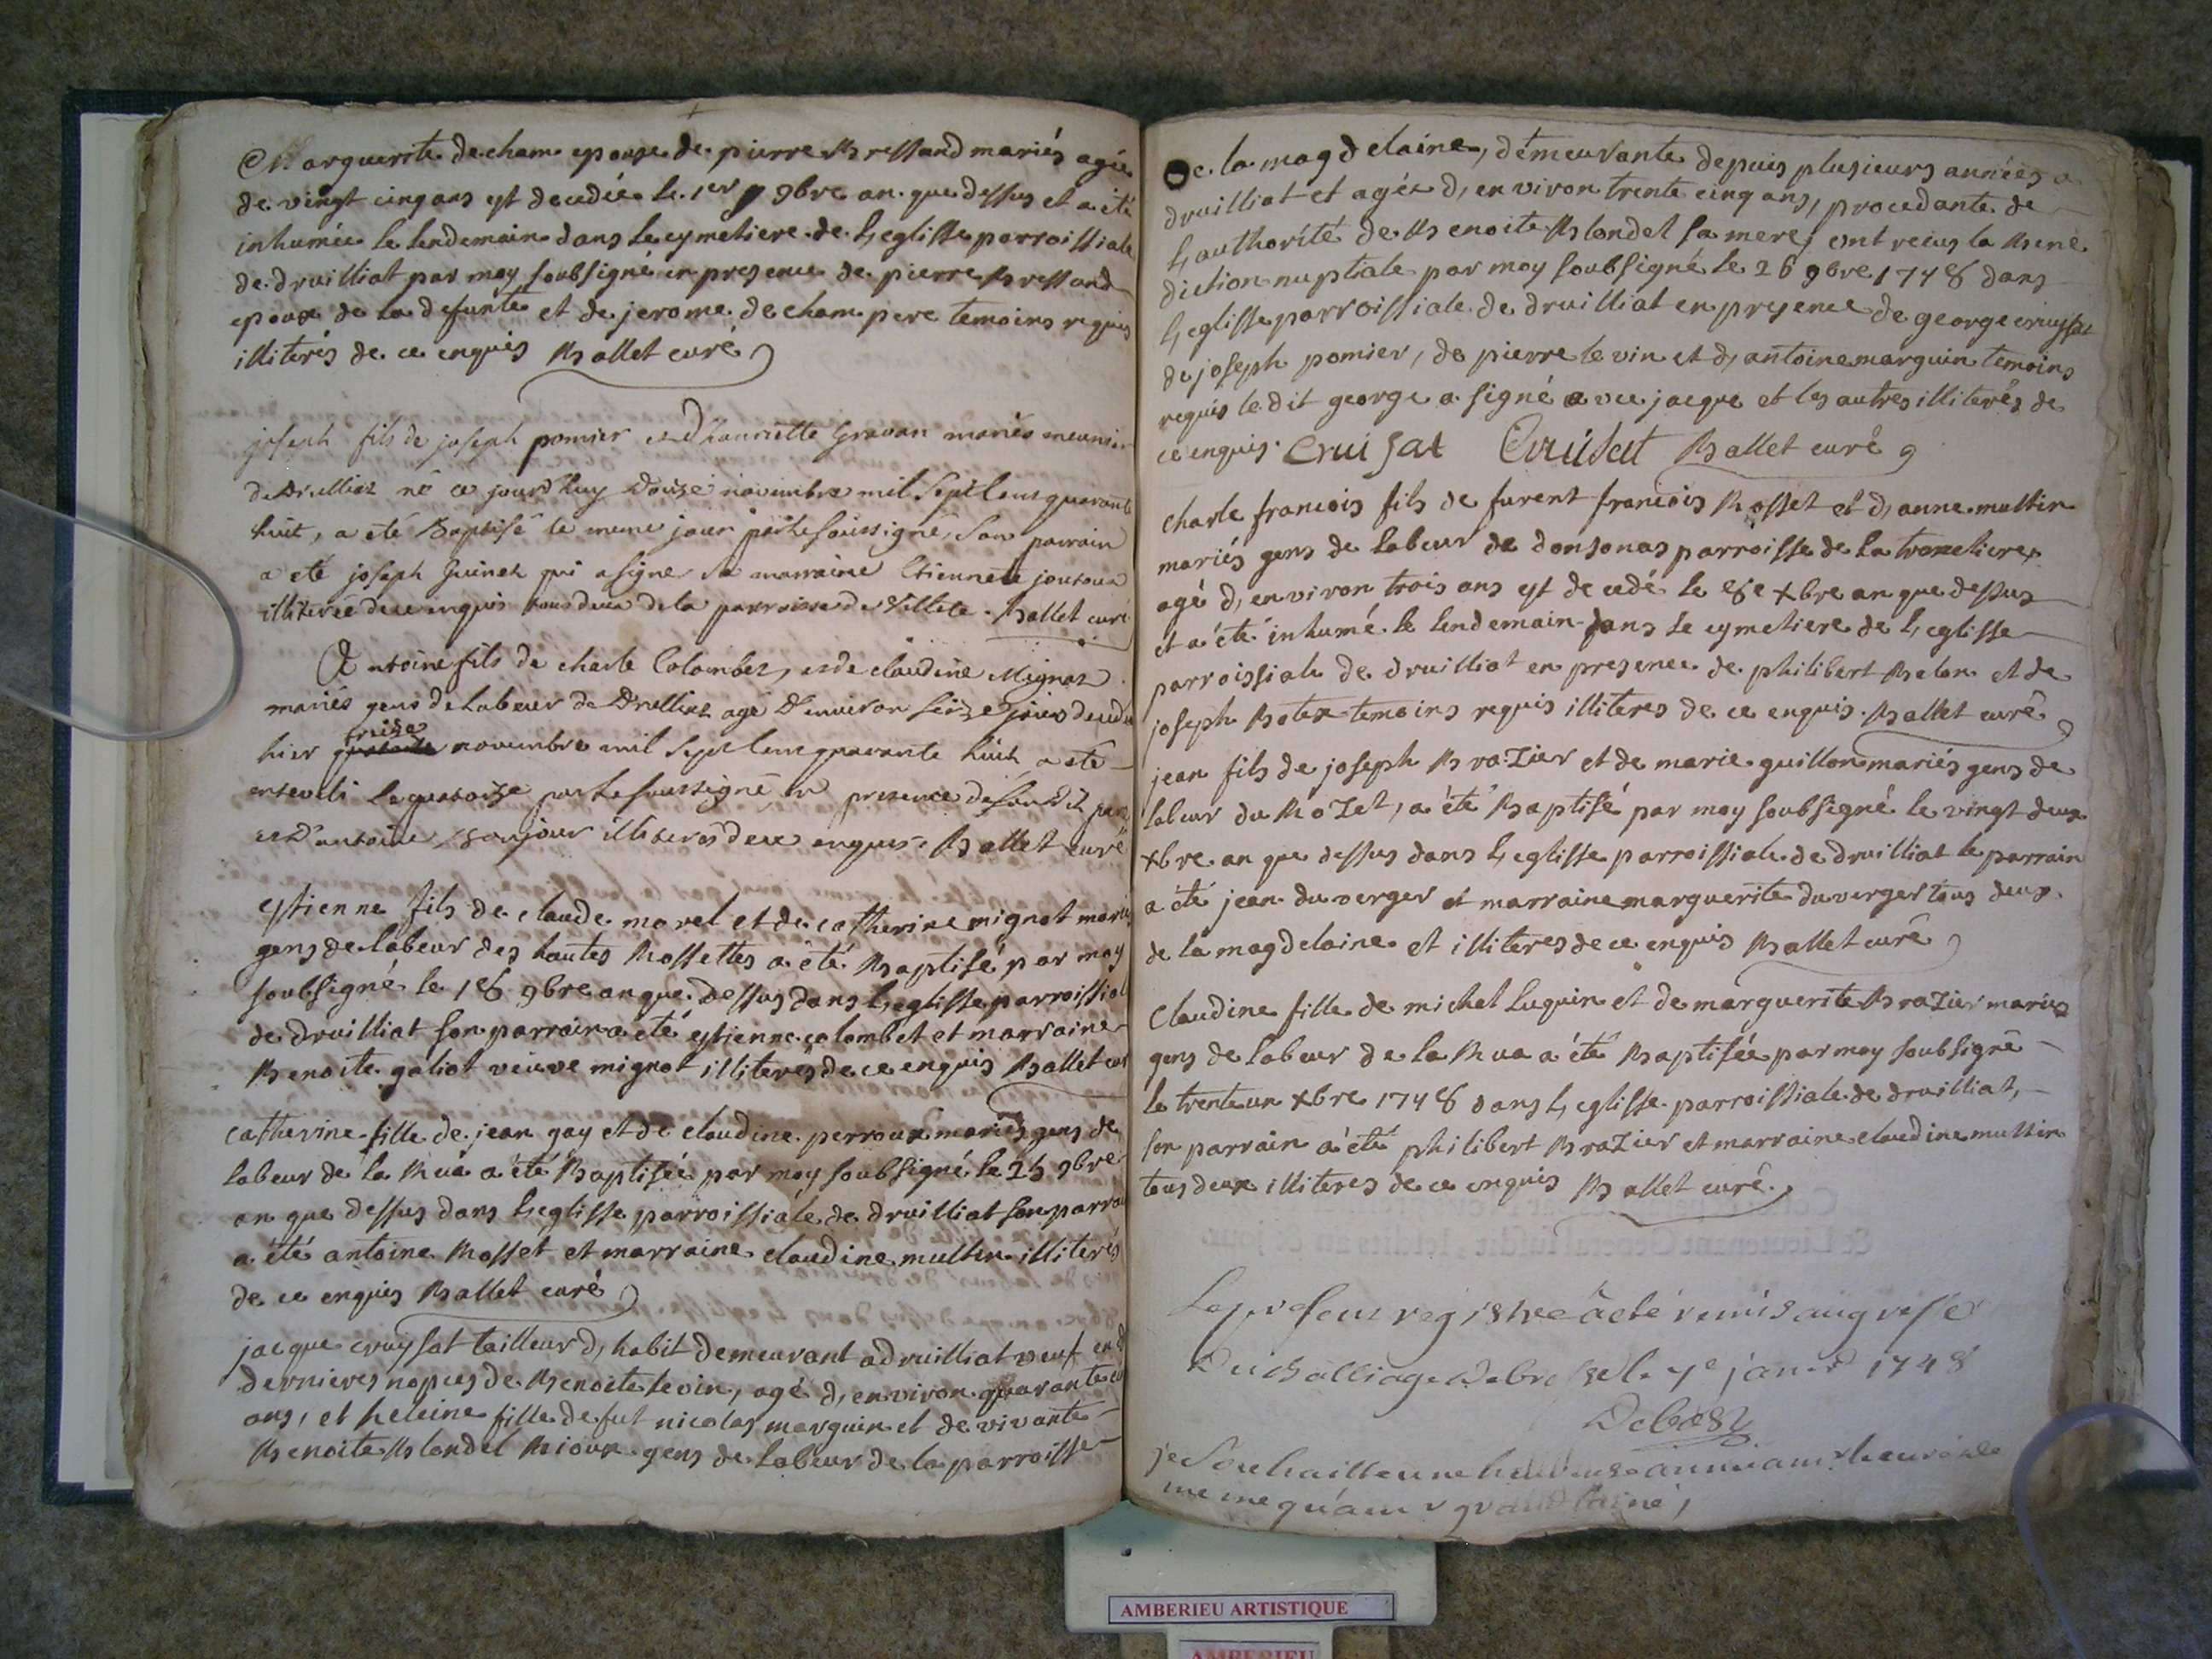 Marguerite decham epouse de pierre Bressand mariés agée
de vingt cinq ans est decedée le 1er 9bre an que dessus et a été
inhumée le lendemain dans le cymetiere de L'eglisse parroissiale
de druilliat par moy soubsigné en presence de pierre Bressand
epoux de la defunte et de jerome decham pere temoins requis
illiterés de ce enquis Ballet curé
joseph fils de joseph pomier et d'hanriette Gravan mariés meunier
de Drulliat né ce jourd'huy douze novembre mil sept cens quarante
huit, a eté Baptisé le meme jour par le soussigné, son parrain
a eté joseph Guinet qui a signé sa marraine Etiennete
illiterée de ce enquis tous deux de la parroisse de Villete. Ballet curé
Antoine fils de charle Colombet, et de claudine Mignot
mariés gens de Labeur de Drulliat agé d'environ seize jours decedé
treize
hier novembre mil sept cens quarante huit, a eté
enseveli le quatorze par le soussigné, en presence de son dit pere
et d'antoine illiterés de ce enquis. Ballet curé
estienne fils de claude morel et de catherine mignot mariés
gens de labeur des hautes Rossettes a été Baptisé par moy
soubsigné le 18 9bre an que dessus dans L'eglisse parroissial
de druilliat son parrain a eté estienne colombet et marraine
Benoite galiot veuve mignot illiterés de ce enquis Ballet cur
catherine fille de jean gay et de claudine perroux mariés gens de
labeur de la Rua a été Baptisée par moy soubsigné le 25 9bre
an que dessus dans L'eglisse parroissiale de druilliat son parrai
a été antoine Rosset et marraine claudine multin illiterés
de ce enquis Ballet curé
jacque cruysat tailleur d'habit demeurant a druilliat veuf en
dernieres nopces de Benoite levin, agé d'environ quarante
ans, et heleine fille de fut nicolas marguin et de vivante
Benoite Blondel Rioux gens de labeur de la parroisse
de la magdelaine, demeurante depuis plusieurs années a
druilliat et agée d'environ trente cinq ans, procedante de
L'authorité de Benoite Blondel sa mere, ont recus la Bene
diction nuptiale par moy soubsigné le 26 9bre 1748 dans
L'eglisse parroissiale de druilliat en presence de george cruysat
de joseph pomier, de pierre levin et d'antoine marguin temoins
requis le dit george a signé avec jacque et les autres illiterés de
ce enquis. Cruisat Cruisat Ballet curé
charle francois fils de furent francois Rosset et d'anne multin
mariés gens de labeur de donsonas parroisse de la trancliere
agé d'environ trois ans est decedé le 8e xbre an que dessus
et a été inhumé le lendemain dans le cymetiere de L'eglisse
parroissiale de druilliat en presence de philibert Belon et de
joseph Botex temoins requis illiteres de ce enquis. Ballet curé
jean fils de joseph BraZier et de marie guillon mariés gens de
labeur du RoZet, a été Baptisé par moy soubsigné le vingt deux
xbre an que dessus dans L'eglisse parroissiale de druilliat le parrain
a été jean duverger et marraine marguerite duverger tous deux
de la magdelaine et illiteres de ce enquis Ballet curé
Claudine fille de michel Luquin et de marguerite BraZier mariés
gens de labeur de la Rua a été Baptisée par moy soubsigné
le trente un xbre 1748 dans L'eglisse parroissiale de druilliat,
son parrain a été philibert BraZier et marraine claudine multin
tous deux illiteres de ce enquis Ballet curé.
Le presens registre a eté remis au greffe
du Balliage de bresse le 7e janer 1748
je souhaitte une heureuse année a mr le curé de
meme qu'a mr
AMBERIEU ARTISTIQUE
AMBERIEU